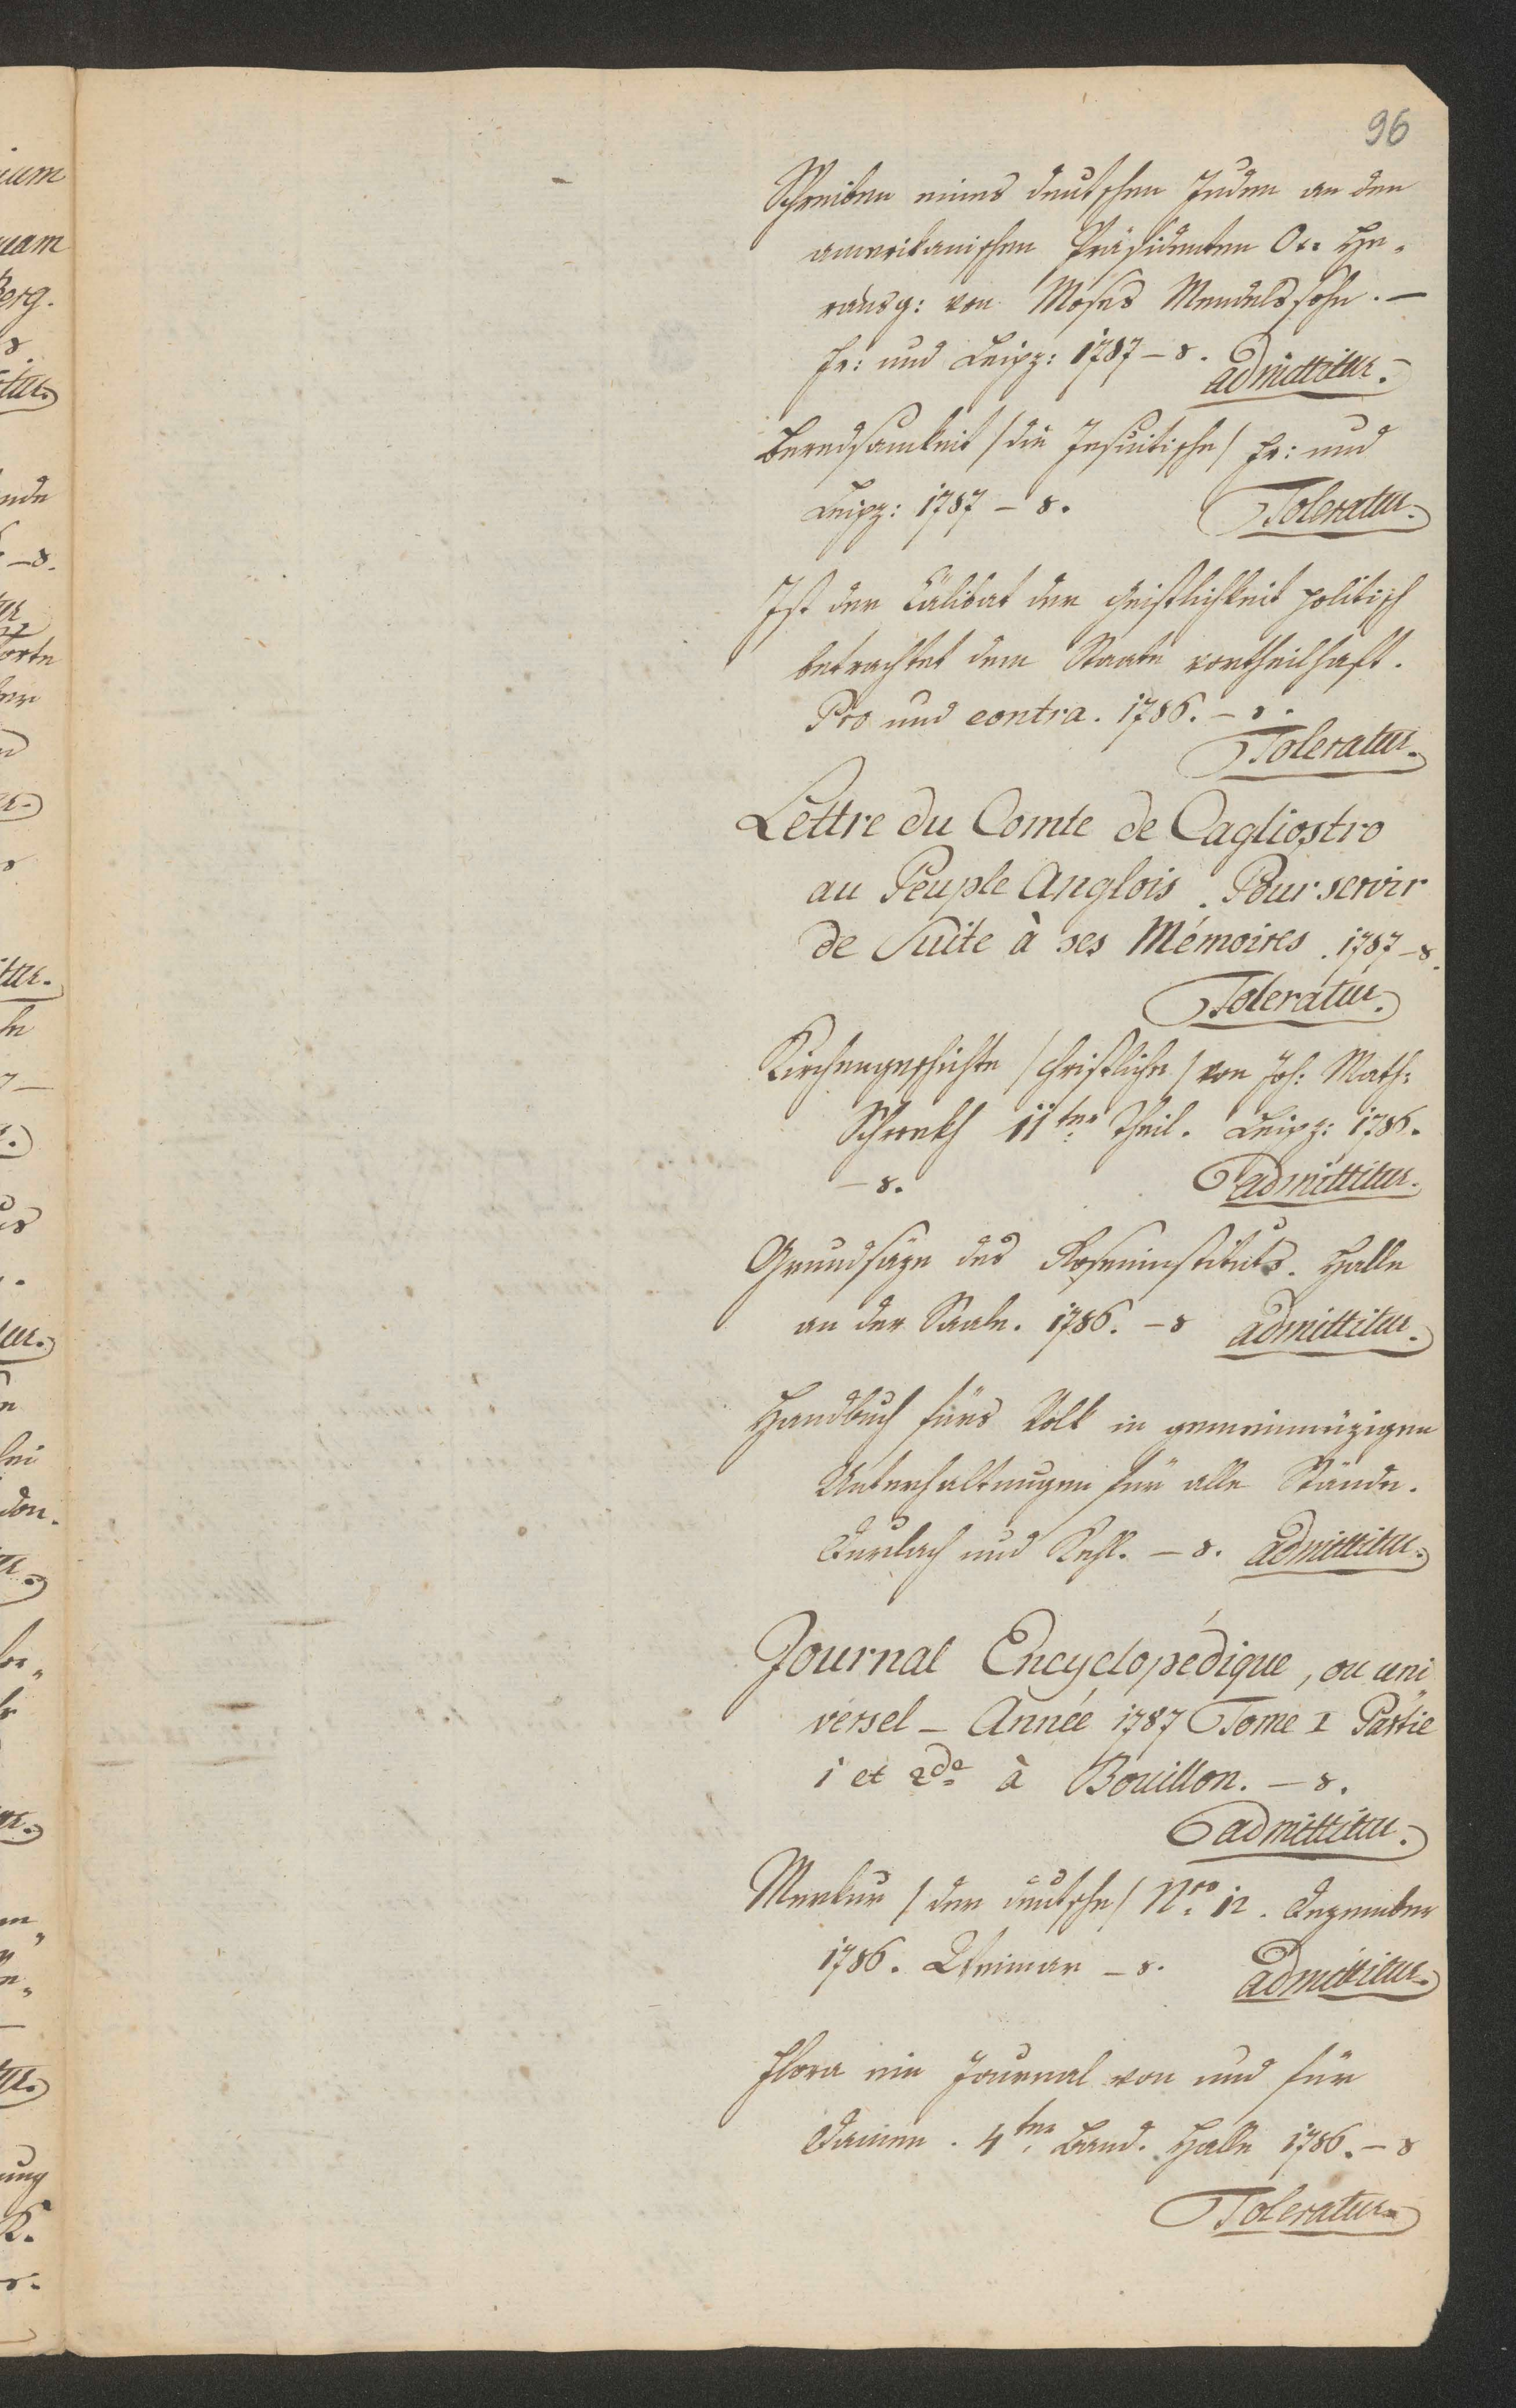 96
Schreiben eines deutschen Juden an den
amerikanischen Präsidenten O.. He-
rausg: von Moses Mendelssohn. —
Fr: und Leipz: 1787 – 8.
admittitur.
Beredsamkeit / die Jesuitische / Fr: und
Leipz: 1787 – 8. Toleratur.
Ist der Cälibat der Geistlichkeit politisch
betrachtet dem Staate vortheilhaft.
Pro und contra. 1786. – 8.
Toleratur.
Lettre du Comte de Cagliostro
au Peuple Anglois. Pour servir
de Suite à ses Mémoires. 1787 – 8.
Toleratur.
Kirchengeschichte / christliche / von Joh: Math:
Schrökh 11ter Theil. Leipz: 1786.
– 8. admittitur.
Grundsäze des Roseninstituts. Halle
an der Saale. 1786. – 8 admittitur.
Handbuch fürs Volk in gemeinnüzigen
Unterhaltungen für alle Stände.
Durlach und Kehl. – 8. admittitur.
Journal Encyclopédique, ou uni-
versel – Année 1787 Tome I Partie
1 et 2de à Bouillon. – 8.
admittitur.
Merkur / der deutsche / Nro 12. Dezember
1786. Weimar – 8. admittitur.
Flora ein Journal von und für
Damen. 4ter Band. Halle 1786. – 8
Toleratur.